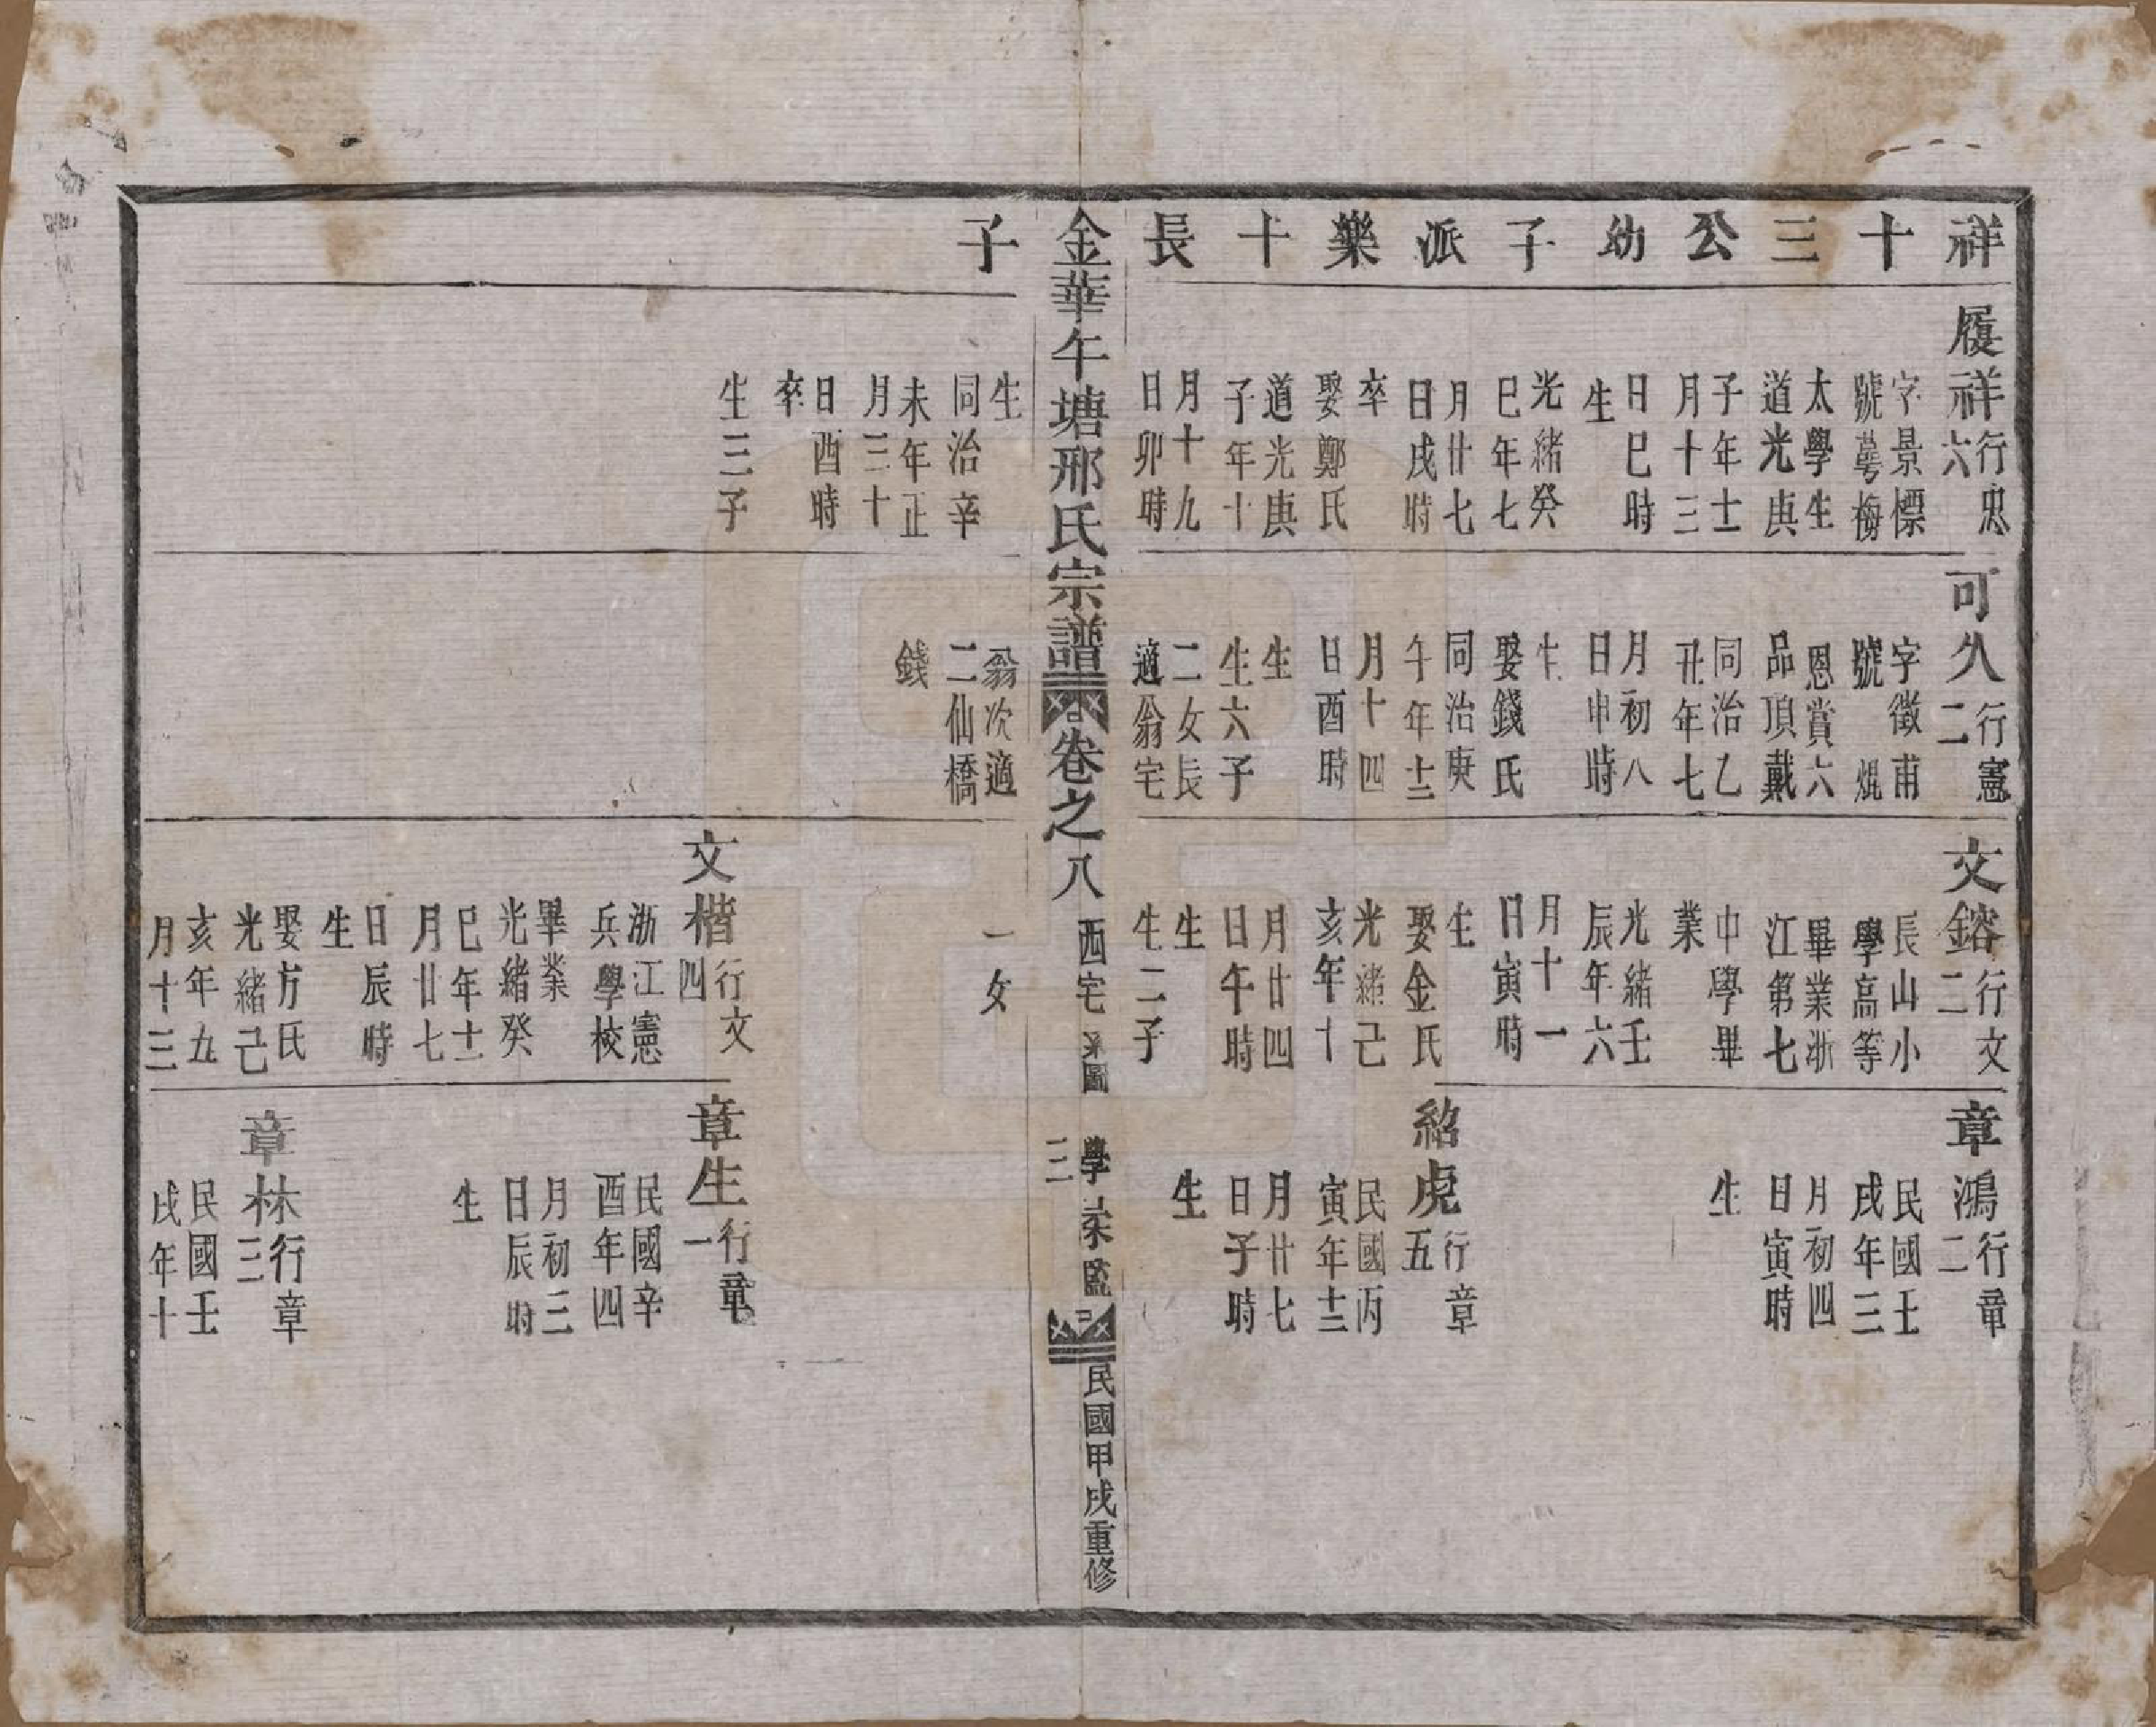 祥十三公幼子派樂十長
履祥
行忠
六
字景標
號萼梅
太學生
道光庚
子年十二
月十三
日巳時
生
光緒癸
巳年七
月廿七
日戌時
卒
娶鄭氏
道光庚
子年十
月十九
日卯時
可久
行憲
二
字徵甫
號焜
恩賞六
品頂戴
同治乙
丑年七
月初八
日申時
生
娶錢氏
同治庚
午年十二
月十四
日酉時
生
生六子
二女長
適翁宅
文鎔
行文
二
長山小
學高等
畢業浙
江第七
中學畢
業
光緒壬
辰年六
月十一
日寅時
生
娶金氏
光緒己
亥年十
月廿四
日午時
生
生二子
章鴻
行章
二
民國壬
戌年三
月初四
日寅時
生
紹虎
行章
五
民國丙
寅年十二
月廿七
日子時
生
金華午塘邢氏宗譜
卷之八
西宅系圖
三
學 監
民國甲戌重修
子
生
同治辛
未年正
月三十
日酉時
卒
生三子
翁次適
二仙橋
錢
一女
文楷
行文
四
浙江憲
兵學校
畢業
光緒癸
巳年十一
月廿七
日辰時
生
娶方氏
光緒己
亥年九
月十三
章生
行章
一
民國辛
酉年四
月初三
日辰時
生
章林
行章
三
民國壬
戌年十